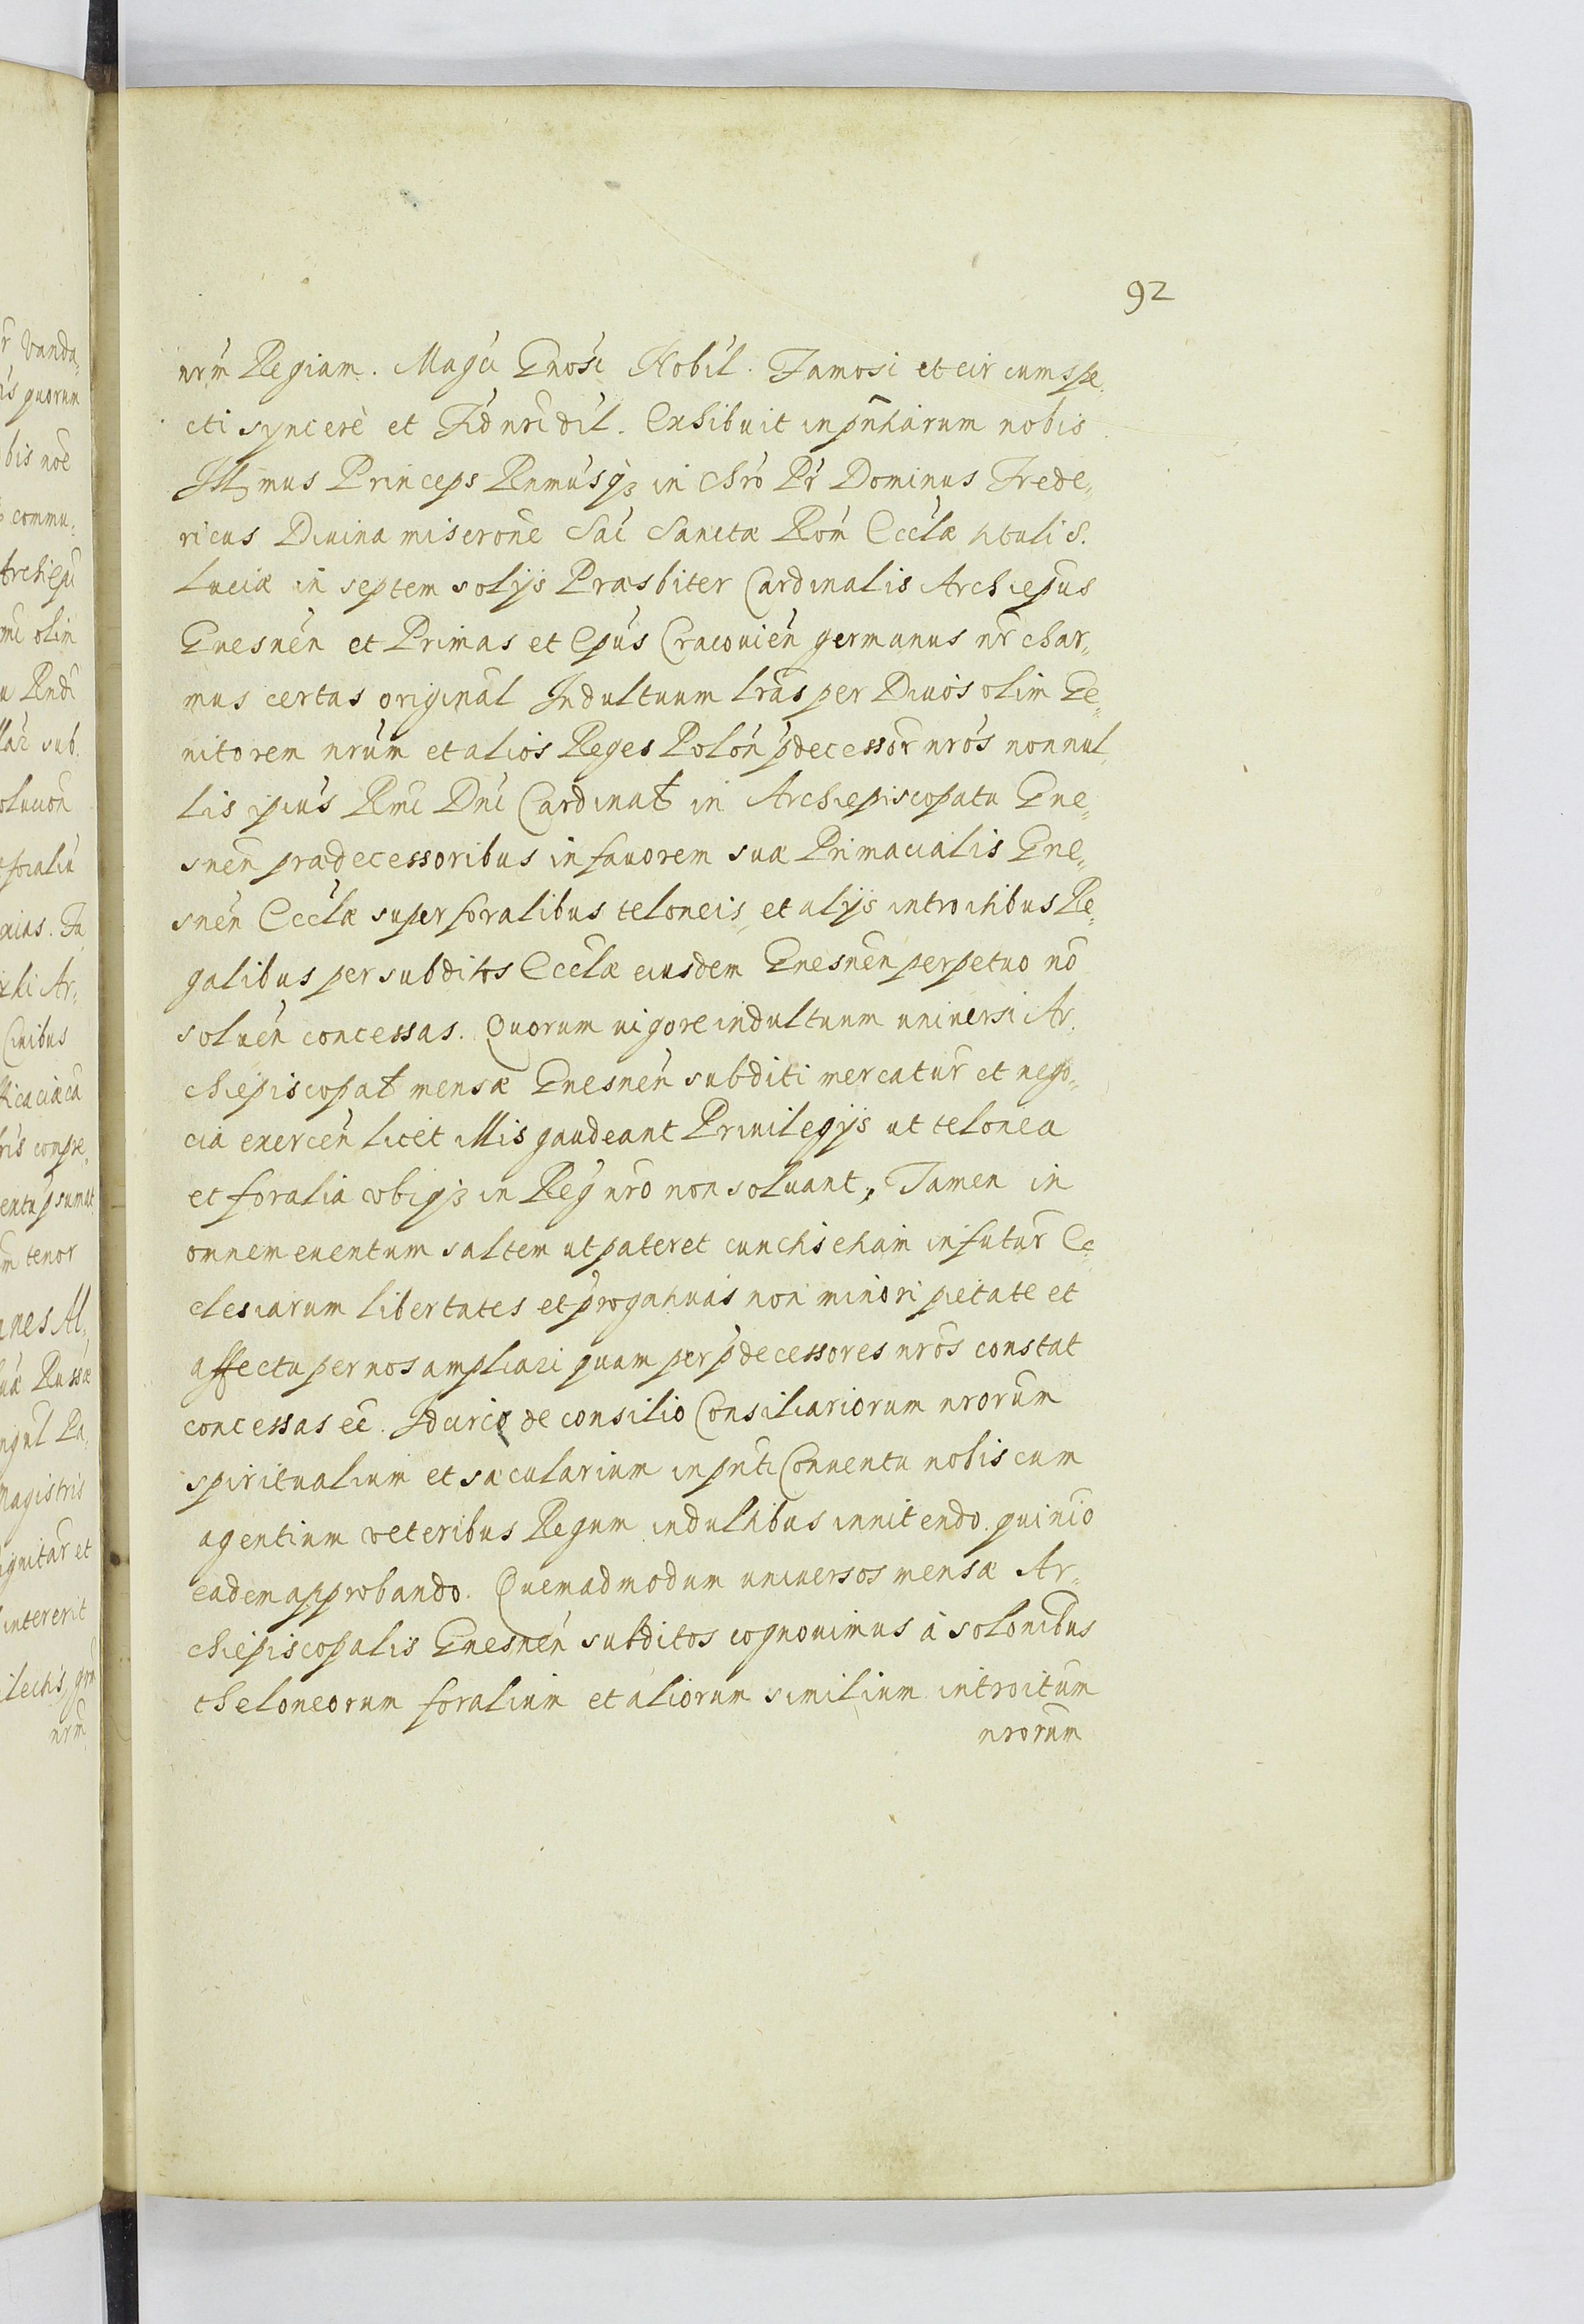 92
nrm Regiam. Magci Gnosi Nobil. Famosi et circumspe,
cti syncerè et Fid nri dil. Exhibuit in pntiarum nobis
Illmus Princeps Rnmusqz in Chro Pr Dominus Frede,
ricus Diuina miserone Sac Sanctæ Rom Ecclæ tituli S.
Luciæ in septem solijs Præsbiter Cardinalis Archiepus
Gnesnen et Primas et Epus Cracouien germanus nr char,
mus certas original Indultuum lras per Diuos olim Ge,
nitorem nrum et alios Reges Polon pdecessor nros nonnul,
lis ipius Rmi Dni Cardinat in Archiepiscopatu Gne,
snen prædecessoribus in fauorem suæ Primacialis Gne,
snen Ecclæ super foralibus teloneis, et alijs introitibus Re,
galibus per subditos Ecclæ eiusdem Gnesnen perpetuo no
soluen concessas. Quorum uigore indultuum uniuersi Ar,
chiepiscopat mensæ Gnesnen subditi mercatur et nego,
cia exercen licet illis gaudeant Priuilegijs ut telonea
et foralia vbiqz in Reg nro non soluant, Tamen in
omnem euentum saltem ut pateret cunctis etiam in futur Ec,
clesiarum libertates et progatiuas non minori pietate et
affectu per nos ampliari quam per pdecessores nros constat
concessas ec. Idcirco de consilio Consiliariorum nrorum
spiritualium et sæcularium in pnti Conuentu nobiscum
agentium veteribus Regum indultibus innitendo quinio
eadem approbando. Quemadmodum uniuersos mensæ Ar,
chiepiscopalis Gnesnen subditos cognouimus à solonibus
theloneorum foralium et aliorum similium introitum
nrorum